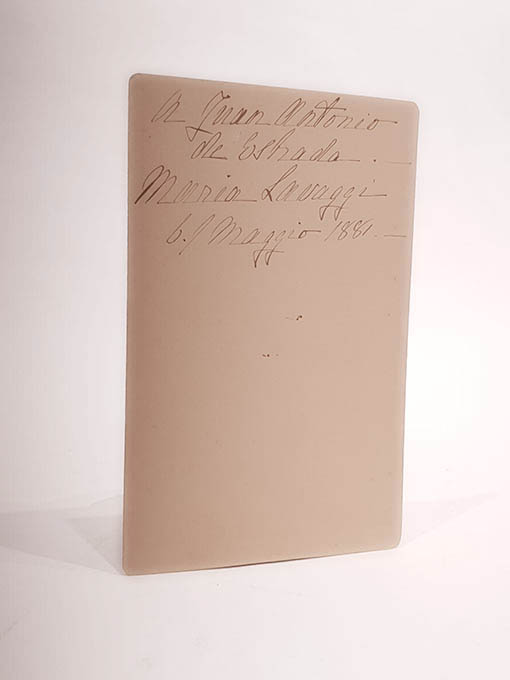 A Juan Antonio
de Estrada. —
Maria Lavaggi
6./ Maggio 1881. —